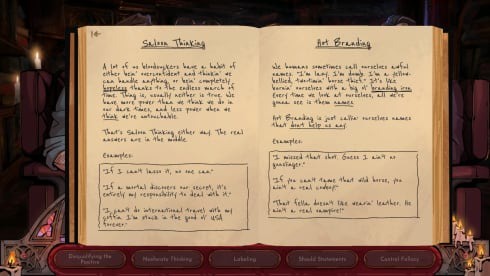 Saloon Thinking
A lot of us bloodsuckers have a habit of
either bein' overconfident and thinkin' we
can handle anything, or bein' completely
hopeless thanks to the endless march of
time. Thing is, usually neither is true. We
have more power than we think we do in
our dark times, and less power when we
think we're untouchable.
That's Saloon Thinking either way. The real
answers are in the middle.
Examples:
"If I can't lasso it, no one can."
"If a mortal discovers our secret, it's
entirely my responsibility to deal with it."
"I can't do international travel with my
coffin. I'm stuck in the good ol' USA
forever."
Hot Branding
We humans sometimes call ourselves awful
names. "I'm lazy. I'm dumb. I'm a yellow-
bellied, two-timin' horse thief." It's like
burnin' ourselves with a big ol' branding iron.
Every time we look at ourselves, all we're
gonna see is them names.
Hot Branding is just callin' ourselves names
that don't help us any.
Examples:
"I missed that shot. Guess I ain't no
gunslinger."
"If you can't tame that wild horse, you
ain't a real cowboy."
"That fella doesn't like wearin' leather. He
ain't a real vampire!"
Disqualifying the
Positive
Moonrate Thinking
Labeling
Should Statements
Control Fallacy